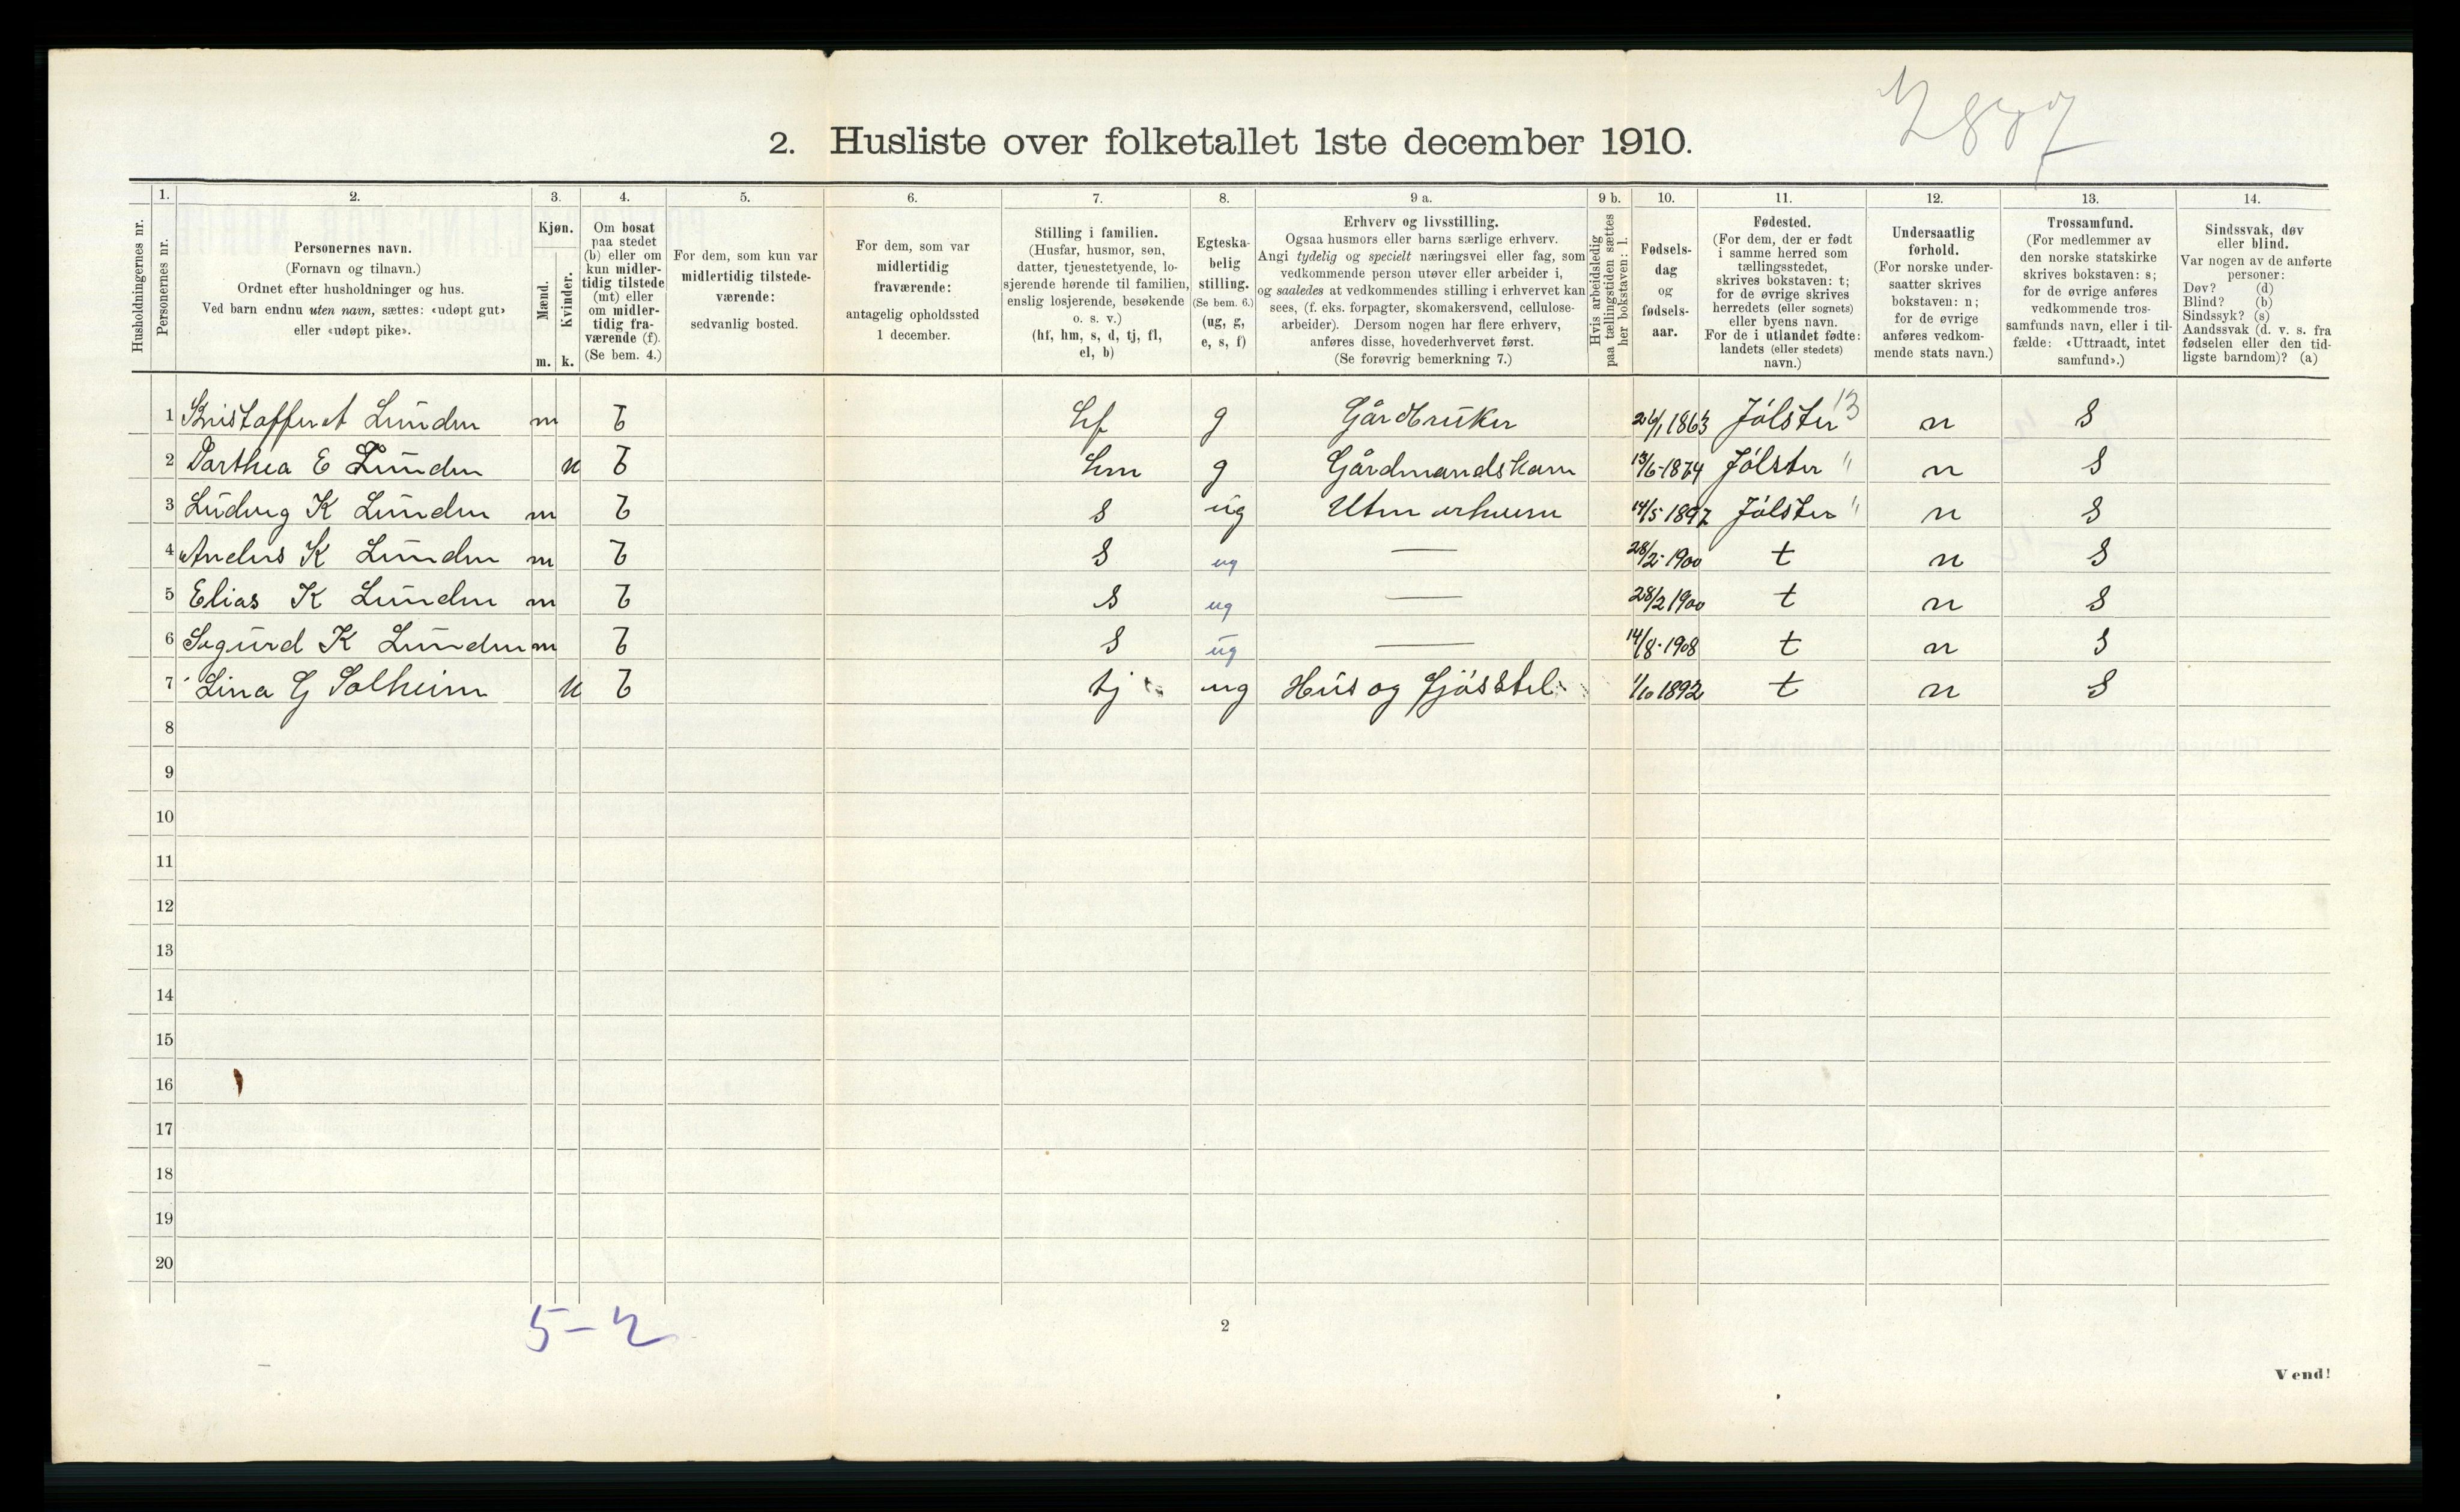 2. Husliste over folketallet 1ste december 1910.
1. 2. 3. 4. 5. 6. 7. 8. 9 a. 9 b. 10. 11. 12. 13. 14.
Husholdningernes nr.
Personernes nr.
Personernes navn.
(Fornavn og tilnavn.)
Ordnet efter husholdninger og hus.
Ved barn endnu uten navn, sættes: «udøpt gut»
eller «udøpt pike».
Kjøn.
Mænd.
Kvinder.
m. k.
Om bosat
paa stedet
(b) eller om
kun midler-
tidig tilstede
(mt) eller
om midler-
tidig fra-
værende (f).
(Se bem. 4.)
For dem, som kun var
midlertidig tilstede-
værende:
sedvanlig bosted.
For dem, som var
midlertidig
fraværende:
antagelig opholdssted
1 december.
Stilling i familien.
(Husfar, husmor, søn,
datter, tjenestetyende, lo-
sjerende hørende til familien,
enslig losjerende, besøkende
o. s. v.)
(hf, hm, s, d, tj, fl,
el, b)
Egteska-
belig
stilling.
(Se bem. 6.)
(ug, g,
e, s, f)
Erhverv og livsstilling.
Ogsaa husmors eller barns særlige erhverv.
Angi tydelig og specielt næringsvei eller fag, som
vedkommende person utøver eller arbeider i,
og saaledes at vedkommendes stilling i erhvervet kan
sees, (f. eks. forpagter, skomakersvend, cellulose-
arbeider). Dersom nogen har flere erhverv,
anføres disse, hovederhvervet først.
(Se forøvrig bemerkning 7.)
Hvis arbeidsledig
paa tællingstiden sættes
her bokstaven: l.
Fødsels-
dag
og
fødsels-
aar.
Fødested.
(For dem, der er født
i samme herred som
tællingsstedet,
skrives bokstaven: t;
for de øvrige skrives
herredets (eller sognets)
eller byens navn.
For de i utlandet fødte:
landets (eller stedets)
navn.)
Undersaatlig
forhold.
(For norske under-
saatter skrives
bokstaven: n;
for de øvrige
anføres vedkom-
mende stats navn.)
Trossamfund.
(For medlemmer av
den norske statskirke
skrives bokstaven: s;
for de øvrige anføres
vedkommende tros-
samfunds navn, eller i til-
fælde: «Uttraadt, intet
samfund».)
Sindssvak, døv
eller blind.
Var nogen av de anførte
personer:
Døv? (d)
Blind? (b)
Sindssyk? (s)
Aandssvak (d. v. s. fra
fødselen eller den tid-
ligste barndom)? (a)
1 Kristoffer A Lunden m b hf g Gårdbruker 26/1 1863 Jølster 13 n S
2 Dorthea E Lunden k b hm g Gårdmandskone 13/6-1874 Jølster " n S
3 Ludvig K Lunden m b s ug Uten erhverv 14/5 1897 Jølster " n S
4 Anders K Lunden m b s ug — 28/2-1900 t n S
5 Elias K Lunden m b s ug — 28/2 1900 t n S
6 Sigurd K Lunden m b s ug — 14/8-1908 t n S
7 Lina G Solheim k b tj ug Hus og fjøsstel 1/10 1892 t n S
8
9
10
11
12
13
14
15
16
17
18
19
20
5-2
2
Vend!